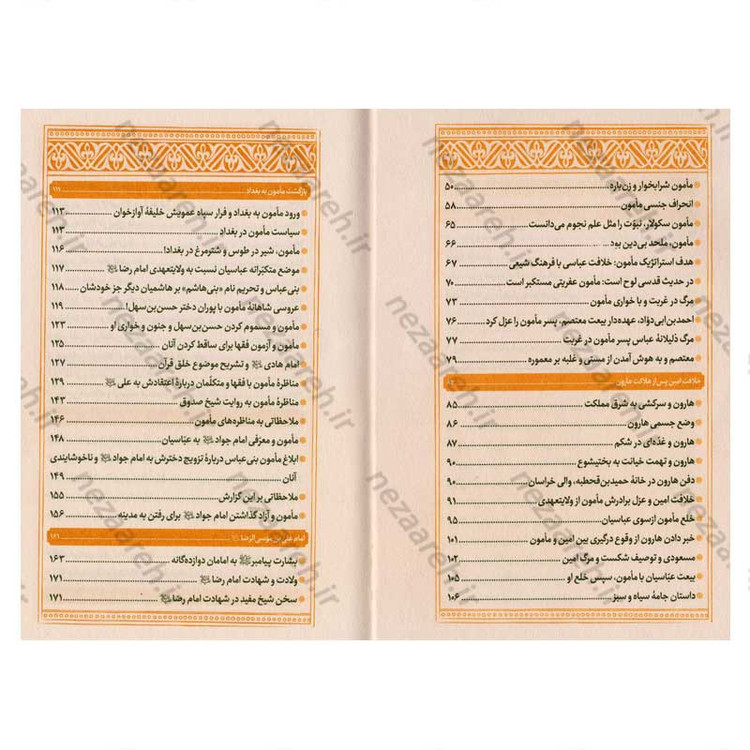 مأمون شرابخوار و زن‌باره ۵۰
انحراف جنسی مأمون ۵۸
مأمون سکولار، نبوّت را مثل علم نجوم می‌دانست ۶۵
مأمون، ملحد بی‌دین بود ۶۶
هدف استراتژیک مأمون: خلافت عباسی با فرهنگ شیعی ۶۷
در حدیث قدسی لوح است: مأمون عفریتی مستکبر است ۷۰
مرگ در غربت و با خواری مأمون ۷۳
احمدبن‌ابی‌دؤاد، عهده‌دار بیعت معتصم، پسر مأمون را عزل کرد ۷۶
مرگ ذلیلانهٔ عباس پسر مأمون در غربت ۷۷
معتصم و به هوش آمدن از مستی و غلبه بر معموره ۷۹
خلافت امین پس از هلاکت هارون ۸۳
هارون و سرکشی به شرق مملکت ۸۵
وضع جسمی هارون ۸۶
هارون و غدّه‌ای در شکم ۸۷
هارون و تهمت خیانت به بختیشوع ۹۰
دفن هارون در خانهٔ حمیدبن‌قحطبه، والی خراسان ۹۰
خلافت امین و عزل برادرش مأمون از ولایتعهدی ۹۱
خلع مأمون ازسوی عباسیان ۹۵
خبر دادن هارون از وقوع درگیری بین امین و مأمون ۱۰۱
مسعودی و توصیف شکست و مرگ امین ۱۰۲
بیعت عبّاسیان با مأمون، سپس خلع او ۱۰۵
داستان جامهٔ سیاه و سبز ۱۰۶
بازگشت مأمون به بغداد ۱۱۱
ورود مأمون به بغداد و فرار سپاه عمویش خلیفهٔ آوازخوان ۱۱۳
سیاست مأمون در بغداد ۱۱۳
مأمون، شیر در طوس و شترمرغ در بغداد! ۱۱۶
موضع متکبّرانه عباسیان نسبت به ولایتعهدی امام رضا ۱۱۷
بنی‌عباس و تحریم نام «بنی‌هاشم» بر هاشمیان دیگر جز خودشان ۱۱۸
عروسی شاهانهٔ مأمون با پوران دختر حسن‌بن‌سهل! ۱۱۹
مأمون و مسموم کردن حسن‌بن‌سهل و جنون و خواری او ۱۲۳
مأمون و آزمون فقها برای ساقط کردن آنان ۱۲۵
امام هادی و تشریح موضوع خلق قرآن ۱۲۷
مناظرهٔ مأمون با فقها و متکلّمان دربارهٔ اعتقادش به علی ۱۲۹
مناظرهٔ مأمون به روایت شیخ صدوق ۱۴۳
ملاحظاتی به مناظره‌های مأمون ۱۴۶
مأمون و معرّفی امام جواد به عبّاسیان ۱۴۸
ابلاغ مأمون بنی‌عباس دربارهٔ تزویج دخترش به امام جواد و ناخوشایندی
آنان ۱۴۹
ملاحظاتی بر این گزارش ۱۵۵
مأمون و آزاد گذاشتن امام جواد برای رفتن به مدینه ۱۵۶
امام علی بن موسی الرضا ۱۶۱
بشارت پیامبر به امامان دوازده‌گانه ۱۶۳
ولادت و شهادت امام رضا ۱۷۱
سخن شیخ مفید در شهادت امام رضا ۱۷۱
nezaareh.ir